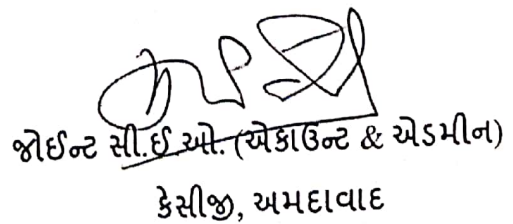 જોઈન્ટ સી.ઈ.ઓ. (એકાઉન્ટ & એડમીન)
કેસીજી, અમદાવાદ